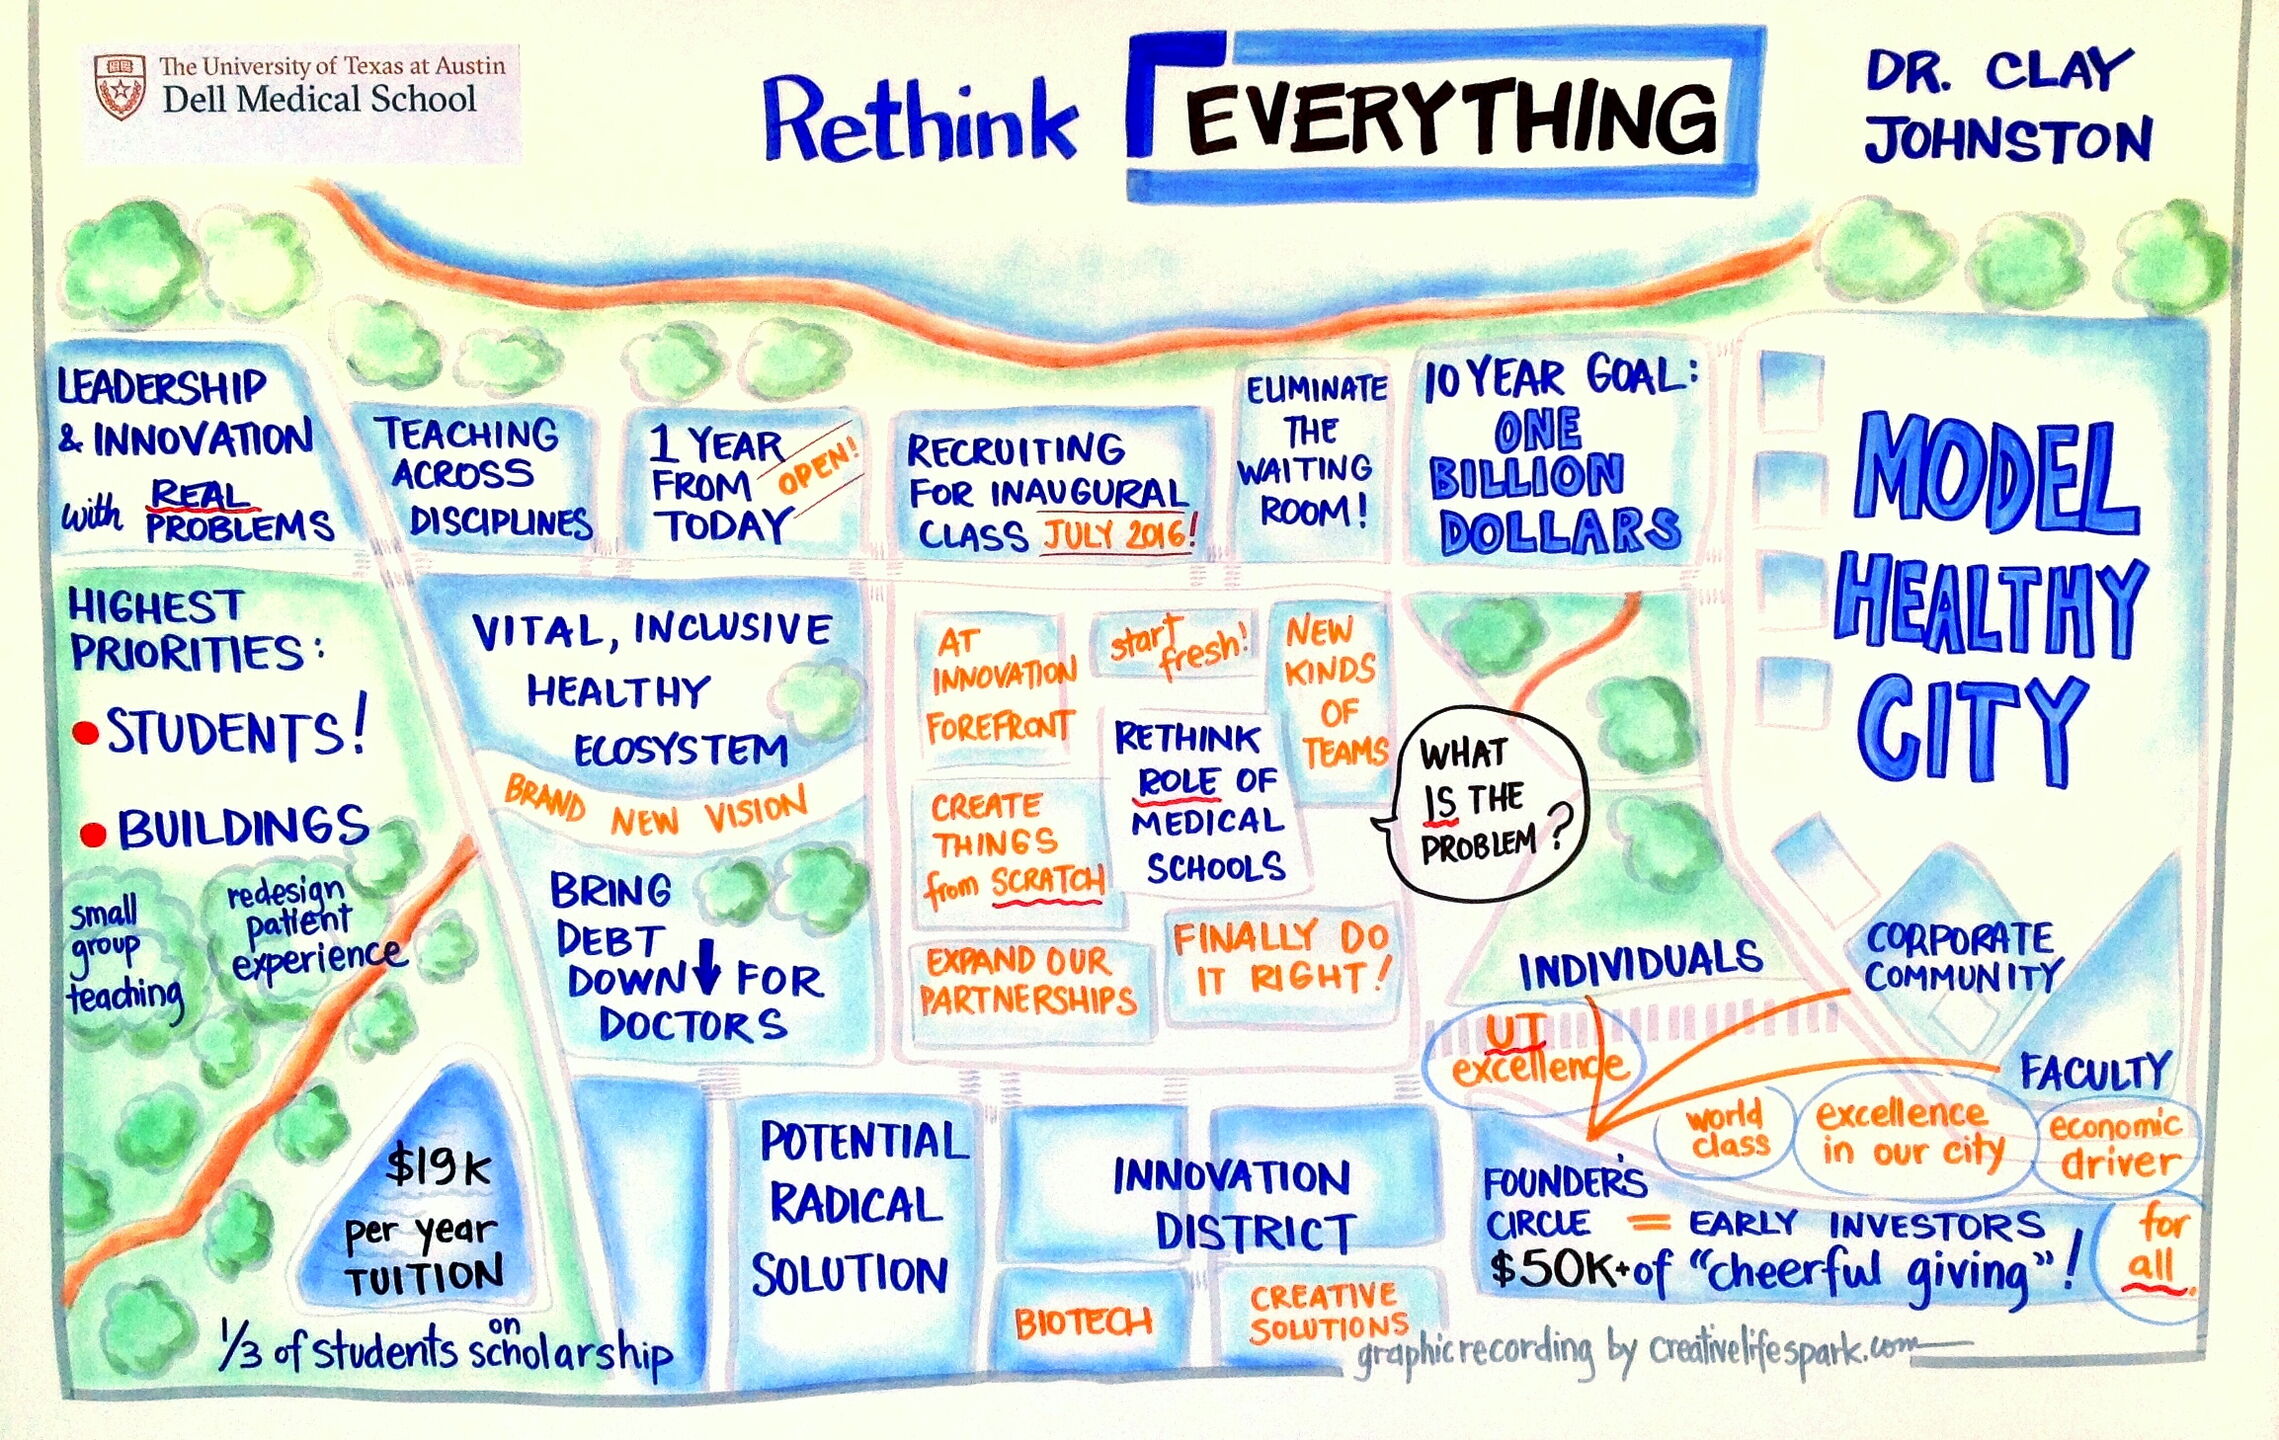 The University of Texas at Austin
Dell Medical School
Rethink EVERYTHING
DR. CLAY
JOHNSTON
LEADERSHIP
& INNOVATION
with REAL
PROBLEMS
TEACHING
ACROSS
DISCIPLINES
1 YEAR
FROM
TODAY
OPEN!
RECRUITING
FOR INAUGURAL
CLASS JULY 2016!
ELIMINATE
THE
WAITING
ROOM!
10 YEAR GOAL:
ONE
BILLION
DOLLARS
MODEL
HEALTHY
CITY
HIGHEST
PRIORITIES:
• STUDENTS!
• BUILDINGS
small
group
teaching
redesign
patient
experience
VITAL, INCLUSIVE
HEALTHY
ECOSYSTEM
BRAND NEW VISION
BRING
DEBT
DOWN ↓ FOR
DOCTORS
AT
INNOVATION
FOREFRONT
start
fresh!
NEW
KINDS
OF
TEAMS
RETHINK
ROLE OF
MEDICAL
SCHOOLS
CREATE
THINGS
from SCRATCH
EXPAND OUR
PARTNERSHIPS
FINALLY DO
IT RIGHT!
WHAT
IS THE
PROBLEM?
INDIVIDUALS
CORPORATE
COMMUNITY
FACULTY
UT
excellence
world
class
excellence
in our city
economic
driver
for
all.
FOUNDER'S
CIRCLE = EARLY INVESTORS
$50K+ of "cheerful giving"!
$19K
per year
TUITION
1/3 of students on scholarship
POTENTIAL
RADICAL
SOLUTION
INNOVATION
DISTRICT
BIOTECH
CREATIVE
SOLUTIONS
graphic recording by creativelifespark.com